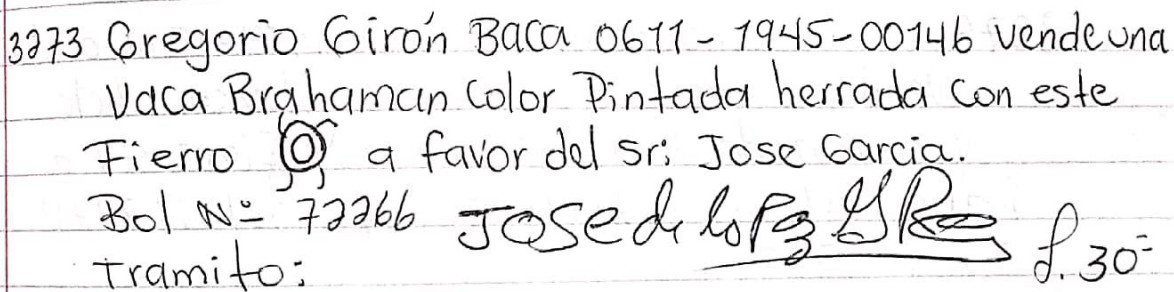 3273 Gregorio Girón Baca 0611-1945-00146 vende una
Vaca Brahaman Color Pintada herrada Con este
Fierro a favor del sr: Jose Garcia.
Bol Nº 72266 JOSE de la Paz L.30=
tramito: